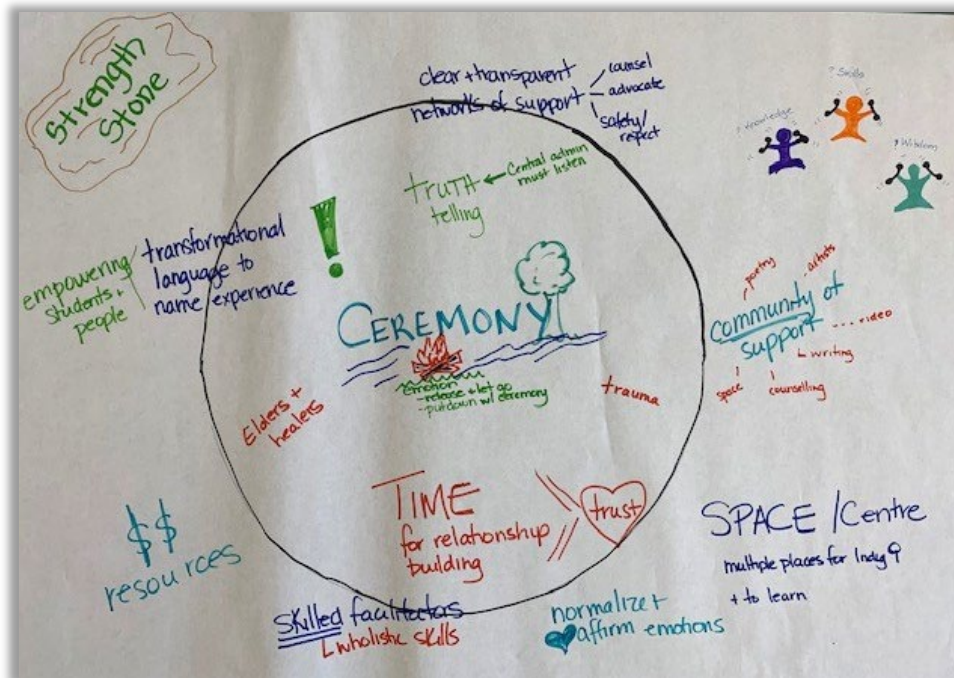 Strength
Stone
clear + transparent
networks of support
counsel
advocate
safety/
respect
? Knowledge
? Skills
? Wisdom
truth
telling
Central admin
must listen
!
empowering
students +
people
transformational
language to
name experience
CEREMONY
emotion
- release + let go
- put down w/ ceremony
Elders +
healers
trauma
community of
support
poetry
artists
video
writing
counselling
space
TIME
for relationship
building
trust
$$
resources
SPACE / Centre
multiple places for Indig ♀
+ to learn
skilled facilitators
wholistic skills
normalize +
affirm emotions